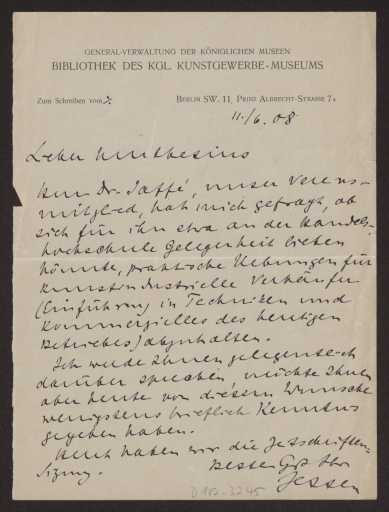 GENERAL-VERWALTUNG DER KÖNIGLICHEN MUSEEN
BIBLIOTHEK DES KGL. KUNSTGEWERBE-MUSEUMS
Zum Schreiben vom
BERLIN SW. 11, PRINZ ALBRECHT-STRASSE 7a
11./6. 08
Lieber Muthesius
Herr Dr. Jaffé, unser Vereins-
mitglied, hat mich gefragt, ob
sich für ihn etwa an der Handels-
hochschule Gelegenheit bieten
könnte, praktische Uebungen für
kunstindustrielle Verkäufer
(Einführung in Techniken und
Kommerzielles des heutigen
Betriebes) abzuhalten.
Ich werde Ihnen gelegentlich
darüber sprechen, möchte Ihnen
aber heute von diesem Wunsche
wenigstens brieflich Kenntnis
gegeben haben.
haben wir die
Sitzung.
Besten Gruss Ihr
Jessen
D 102-3245